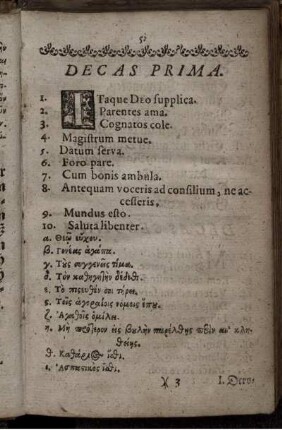 DECAS PRIMA.
1. ITaque Deo supplica.
2. Parentes ama.
3. Cognatos cole.
4. Magistrum metue.
5. Datum serva.
6. Foro pare.
7. Cum bonis ambula.
8. Antequam voceris ad consilium, ne ac-
cesseris.
9. Mundus esto.
10. Saluta libenter.
α. Θεῷ εὔχου.
β. Γονέας ἀγάπα.
γ. Τοὺς συγγενεῖς τίμα.
δ. Τὸν καθηγητὴν δέδιθι.
ε. Τὸ πιστευθέν σοι τήρει.
ς. Τοῖς ἀγοραίοις νόμοις ἕπου.
ζ. Ἀγαθοῖς ὁμίλει.
η. Μὴ πρότερον εἰς βουλὴν παρέλθῃς πρὶν ἂν κλη-
θείης.
θ. Καθάριος ἴσθι.
ι. Ἀσπαστικὸς ἴσθι.
)( 3 1. Deco-